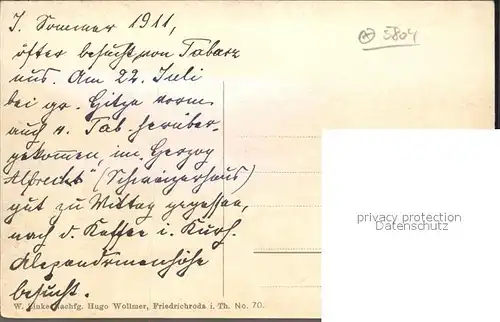 I. Sommer 1911,
öfter besucht von Tabarz
aus. Am 22. Juli
bei gr. Hitze vorm.
auch v. Tab. herüber-
gekommen, im „Herzog
Albrecht" (Schweizerhaus)
gut zu Mittag gegessen,
nach d. Kaffee i. Kurh.
Alexandrinenhöhe
besucht.
5804
privacy protection
Datenschutz
W. Zinke Nachfg. Hugo Wollmer, Friedrichroda i. Th. No. 70.